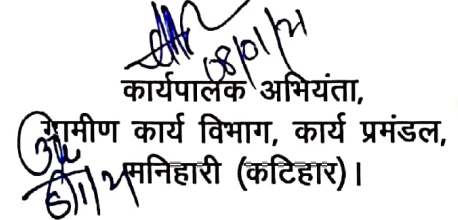 08/01/21
कार्यपालक अभियंता,
ग्रामीण कार्य विभाग, कार्य प्रमंडल,
मनिहारी (कटिहार)।